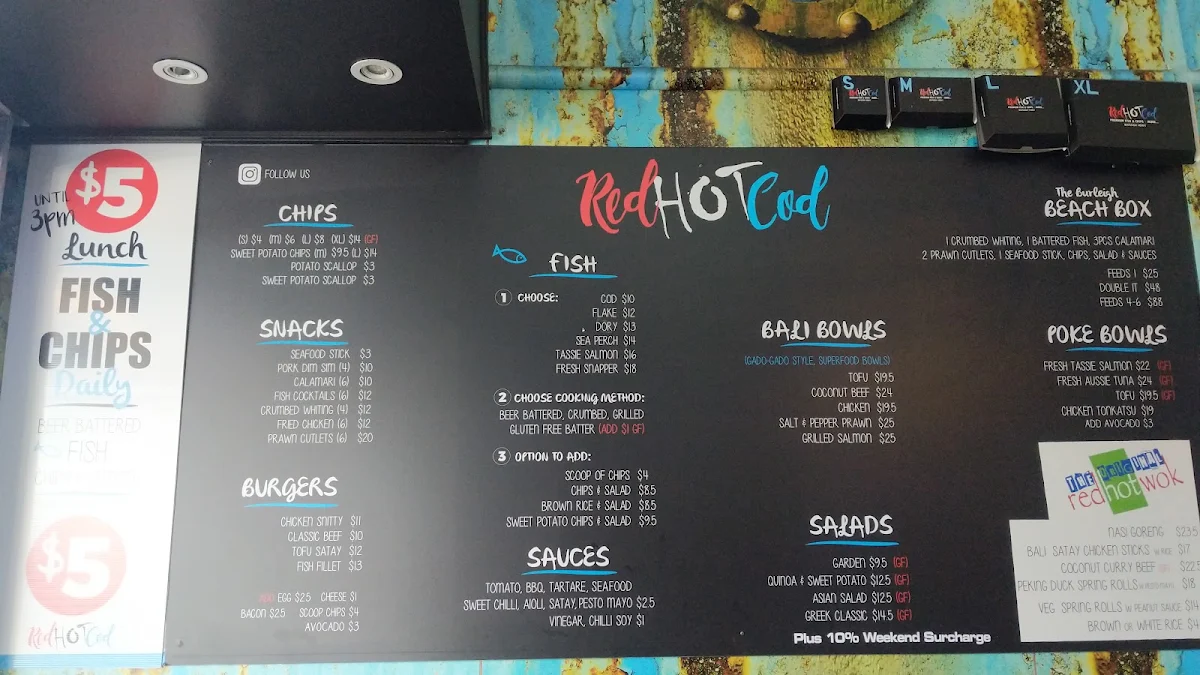 UNTIL
3pm
$5
Lunch
FISH
&
CHIPS
Daily
BEER BATTERED
FISH
$5
RedHOTCod
FOLLOW US
CHIPS
(S) $4 (M) $6 (L) $8 (XL) $14 (GF)
SWEET POTATO CHIPS (M) $9.5 (L) $14
POTATO SCALLOP $3
SWEET POTATO SCALLOP $3
SNACKS
SEAFOOD STICK $3
PORK DIM SIM (4) $10
CALAMARI (6) $10
FISH COCKTAILS (6) $12
CRUMBED WHITING (4) $12
FRIED CHICKEN (6) $12
PRAWN CUTLETS (6) $20
BURGERS
CHICKEN SNITTY $11
CLASSIC BEEF $10
TOFU SATAY $12
FISH FILLET $13
ADD EGG $2.5 CHEESE $1
BACON $2.5 SCOOP CHIPS $4
AVOCADO $3
RedHOTCod
FISH
1 CHOOSE: COD $10
FLAKE $12
DORY $13
SEA PERCH $14
TASSIE SALMON $16
FRESH SNAPPER $18
2 CHOOSE COOKING METHOD:
BEER BATTERED, CRUMBED, GRILLED
GLUTEN FREE BATTER (ADD $1 GF)
3 OPTION TO ADD:
SCOOP OF CHIPS $4
CHIPS & SALAD $8.5
BROWN RICE & SALAD $8.5
SWEET POTATO CHIPS & SALAD $9.5
SAUCES
TOMATO, BBQ, TARTARE, SEAFOOD
SWEET CHILLI, AIOLI, SATAY, PESTO MAYO $2.5
VINEGAR, CHILLI SOY $1
BALI BOWLS
(GADO-GADO STYLE, SUPERFOOD BOWLS)
TOFU $19.5
COCONUT BEEF $24
CHICKEN $19.5
SALT & PEPPER PRAWN $25
GRILLED SALMON $25
SALADS
GARDEN $9.5 (GF)
QUINOA & SWEET POTATO $12.5 (GF)
ASIAN SALAD $12.5 (GF)
GREEK CLASSIC $14.5 (GF)
Plus 10% Weekend Surcharge
S
RedHOTCod
M
RedHOTCod
L
RedHOTCod
XL
RedHOTCod
The Burleigh
BEACH BOX
1 CRUMBED WHITING, 1 BATTERED FISH, 3PCS CALAMARI
2 PRAWN CUTLETS, 1 SEAFOOD STICK, CHIPS, SALAD & SAUCES
FEEDS 1 $25
DOUBLE IT $48
FEEDS 4-6 $88
POKE BOWLS
FRESH TASSIE SALMON $22 (GF)
FRESH AUSSIE TUNA $24 (GF)
TOFU $19.5 (GF)
CHICKEN TONKATSU $19
ADD AVOCADO $3
THE ORIGINAL
red hot wok
NASI GORENG $23.5
BALI SATAY CHICKEN STICKS W RICE $17
COCONUT CURRY BEEF $22.5
PEKING DUCK SPRING ROLLS $18
VEG SPRING ROLLS W PEANUT SAUCE $14
BROWN OR WHITE RICE $4